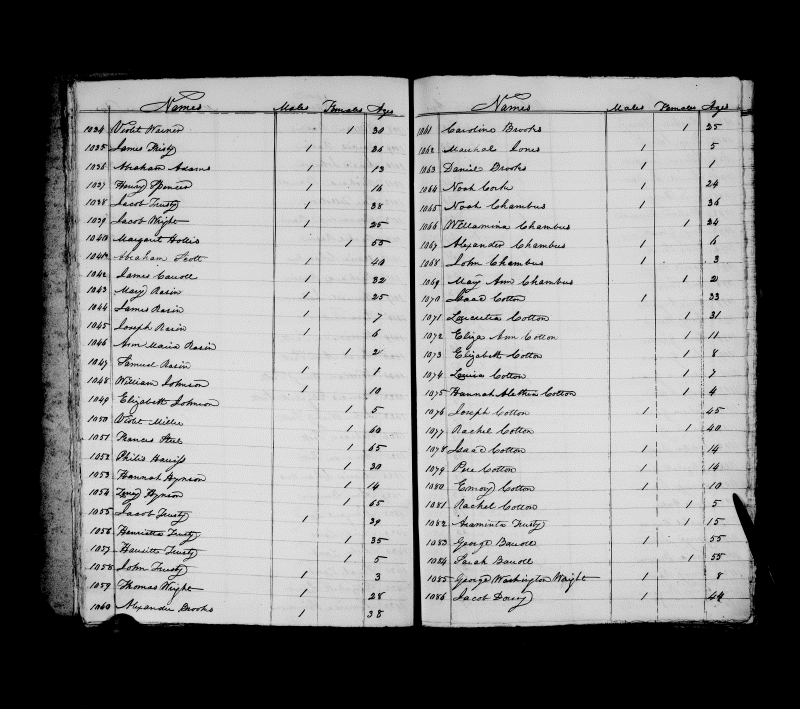 Names Males Females Ages
1034 Violet Warner 1 30
1035 James Trusty 1 26
1036 Abraham Adams 1 13
1037 Henry Spencer 1 16
1038 Jacob Trusty 1 38
1039 Jacob Wright 1 25
1040 Margaret Hollis 1 55
1041 Abraham Scott 1 40
1042 James Caulk 1 32
1043 Mary Rasin 1 25
1044 James Rasin 1 7
1045 Joseph Rasin 1 6
1046 Ann Maria Rasin 1 2
1047 Samuel Rasin 1 1
1048 William Johnson 1 10
1049 Elizabeth Johnson 1 5
1050 Violet Miller 1 60
1051 Frances 1 65
1052 Philis 1 30
1053 Hannah Hynson 1 14
1054 Hynson 1 65
1055 Jacob Trusty 1 39
1056 Henrietta Trusty 1 35
1057 Trusty 1 5
1058 John Trusty 1 3
1059 Thomas Wright 1 28
1060 Alexander Brooks 1 38
Names Males Females Ages
1061 Caroline Brooks 1 25
1062 Marshal Jones 1 5
1063 Daniel Brooks 1 1
1064 Noah Cork 1 24
1065 Noah Chambus 1 36
1066 Willamina Chambus 1 24
1067 Alexander Chambus 1 6
1068 John Chambus 1 3
1069 May Ann Chambus 1 2
1070 Isaac Cotton 1 33
1071 Loucretia Cotton 1 31
1072 Eliza Ann Cotton 1 11
1073 Elizabeth Cotton 1 8
1074 Louisa Cotton 1 7
1075 Hannah Alethea Cotton 1 4
1076 Joseph Cotton 1 45
1077 Rachel Cotton 1 40
1078 Isaac Cotton 1 14
1079 Pere Cotton 1 14
1080 Emory Cotton 1 10
1081 Rachel Cotton 1 5
1082 Araminta Trusty 1 15
1083 George 1 55
1084 Sarah 1 55
1085 George Washington Wright 1 8
1086 Jacob Dorsey 1 44